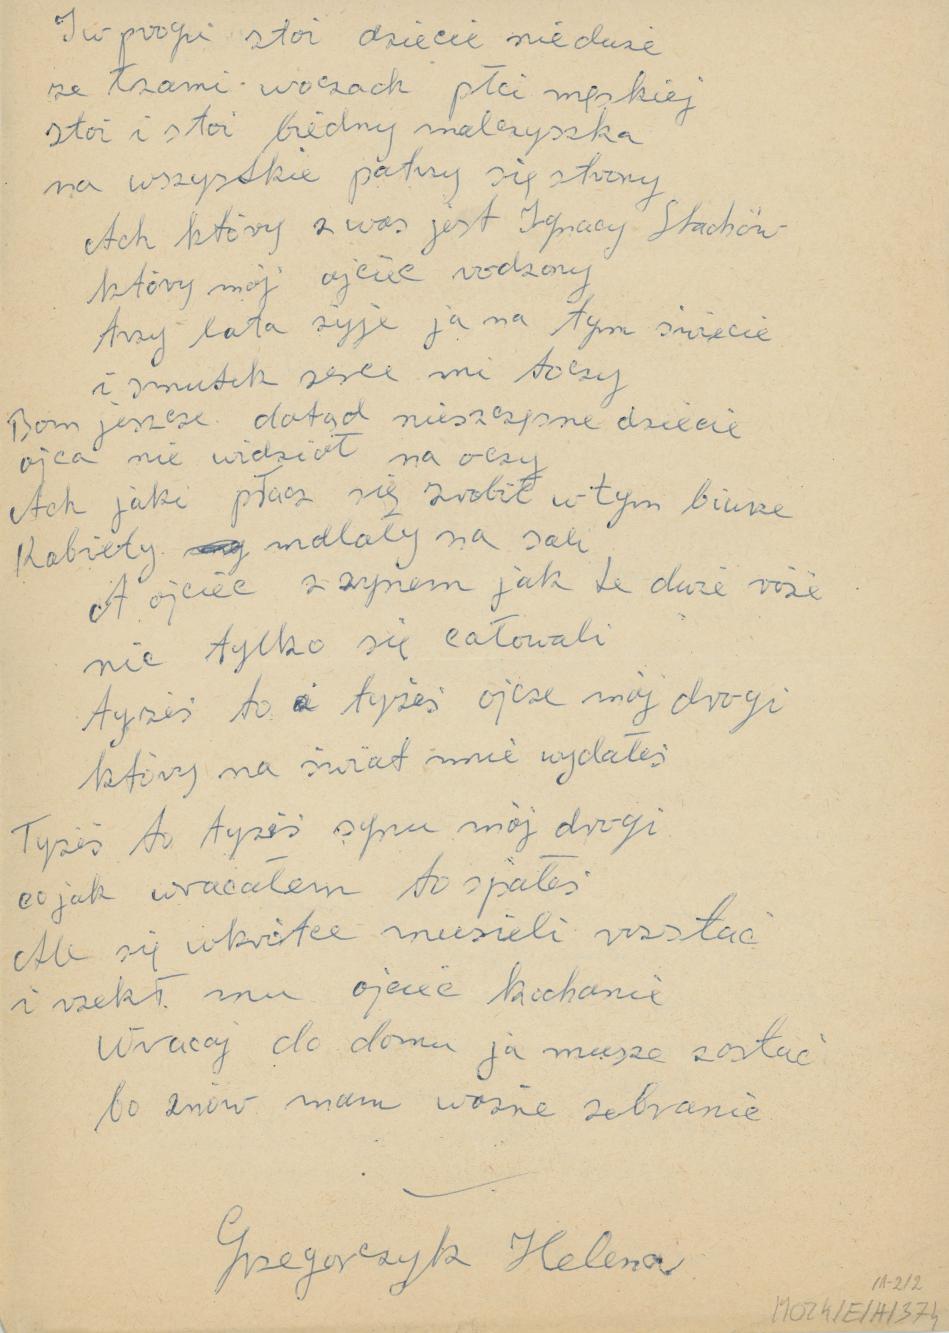 I w progi stoi dziecie nieduże
ze łzami w oczach płci męskiej
stoi i stoi biedny malczyszka
na wszystkie patrzy się strony
Ach który z was jest Ignacy Stachów
który mój ojciec rodzony
trzy lata żyje ja na tym świecie
i smutek serce mi toczy
Bom jeszcze dotąd nieszczęsne dziecie
ojca nie widział na oczy
Ach jaki płacz się zrobił w tym biurze
Kobiety mdlały na sali
A ojciec z synem jak te duże róże
nic tylko się całowali
tyżeś to i tyżeś ojcze mój drogi
który na świat mnie wydałeś
Tyżeś to tyżeś synu mój drogi
co jak wracałem to spałeś
Ale się wkrótce musieli rozstać
i rzekł mu ojciec kochanie
Wracaj do domu ja musze zostać
bo znów mam ważne zebranie
Grzegorczyk Helena